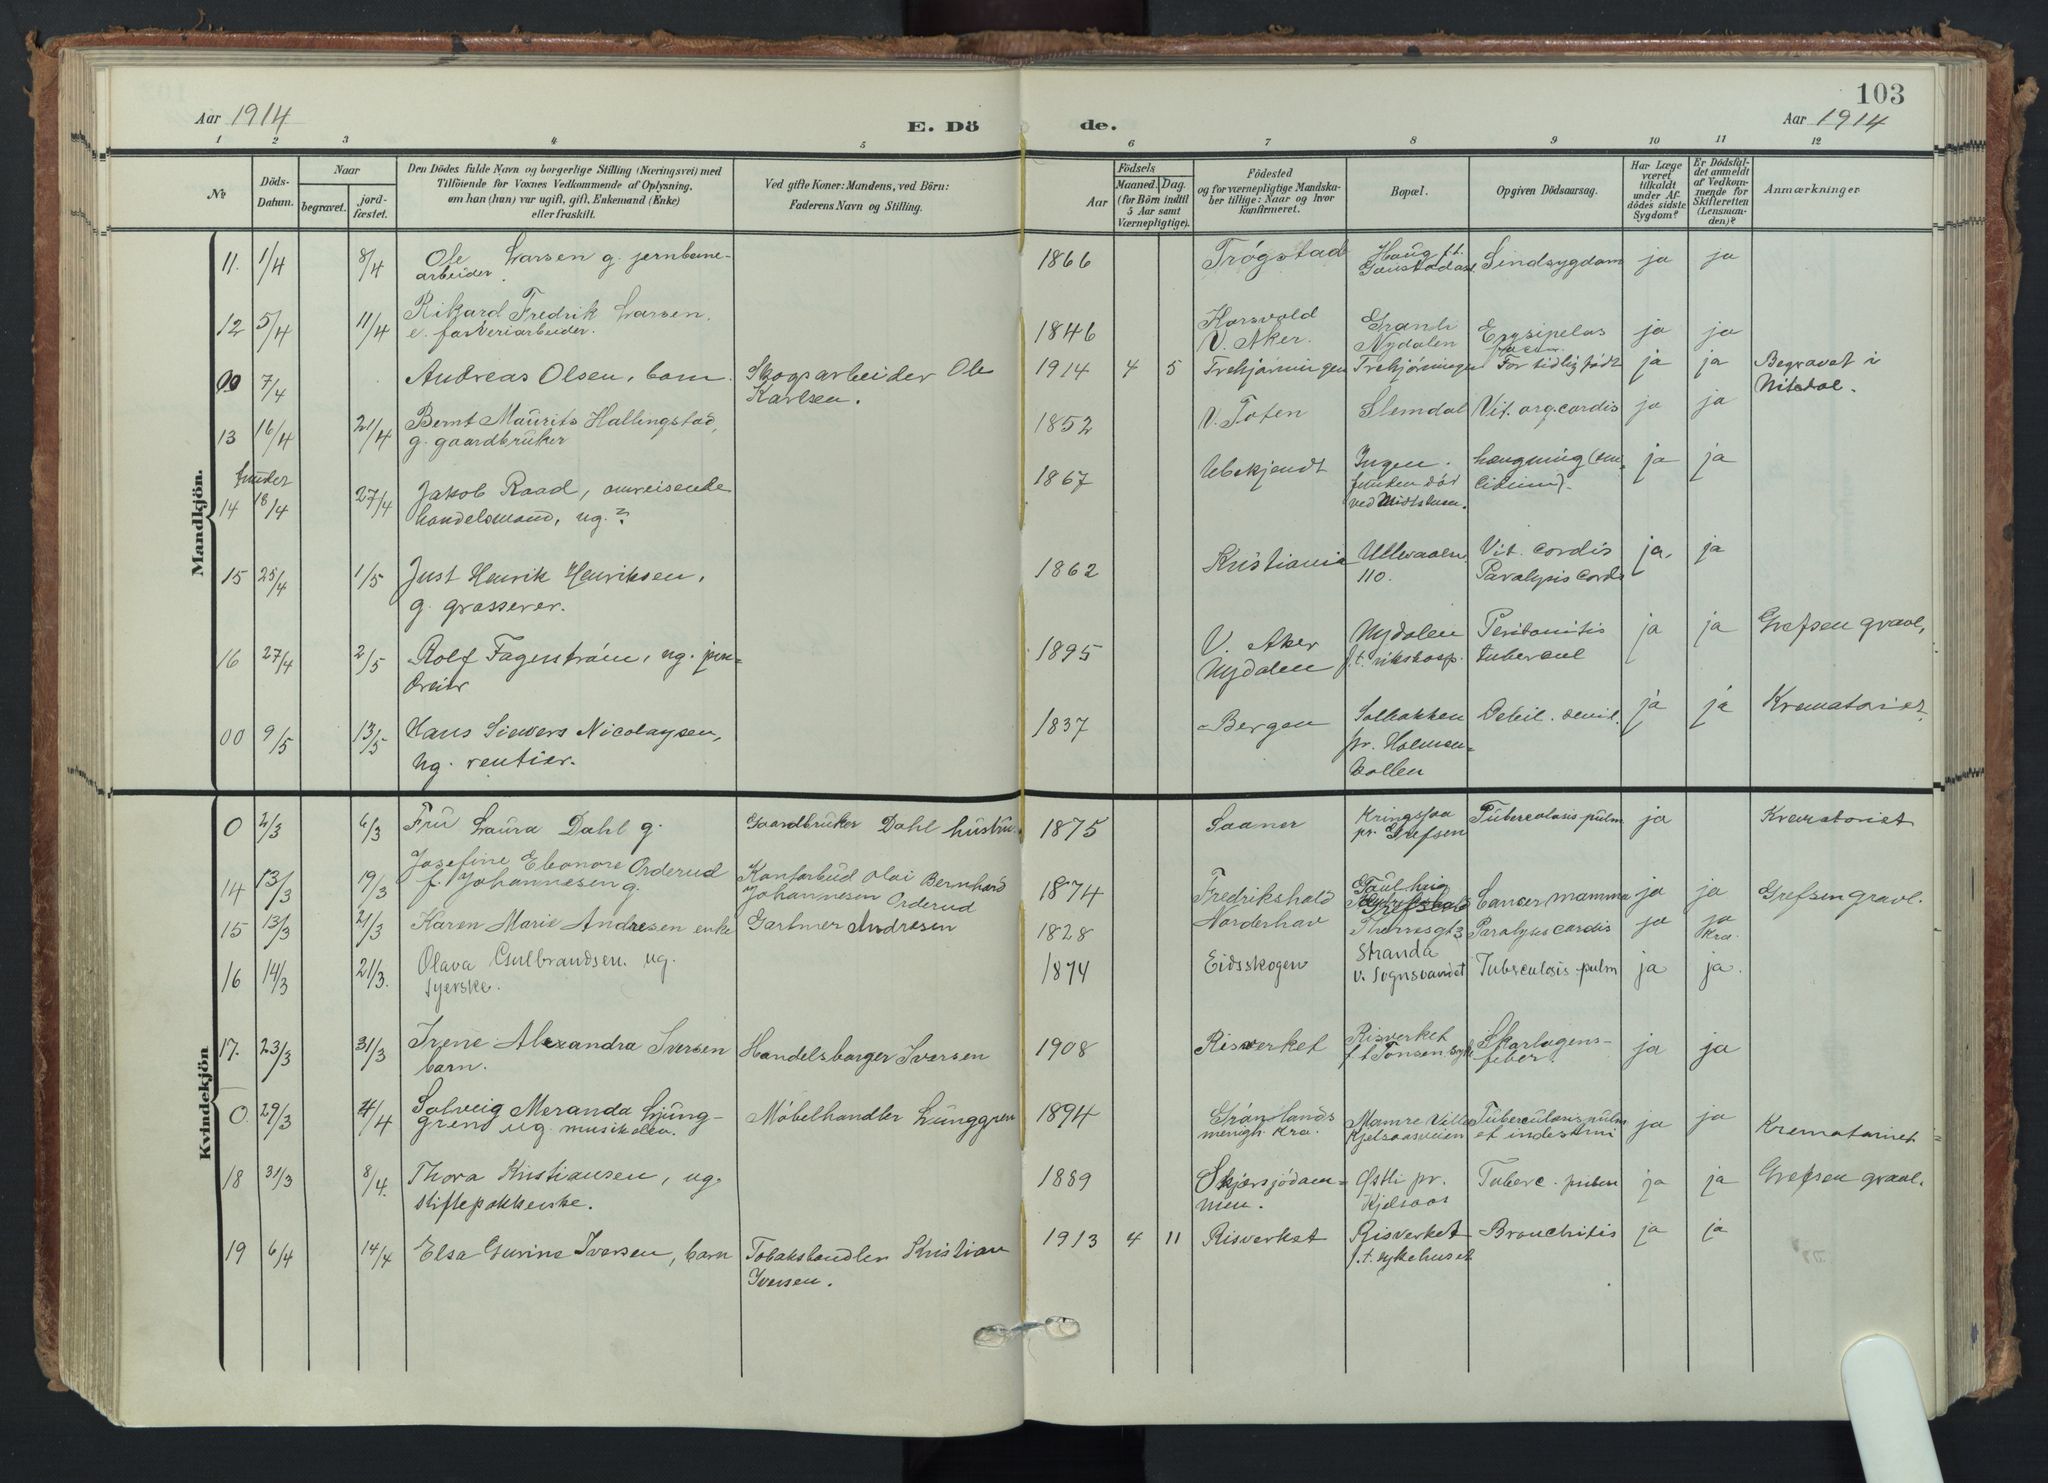 103
Aar 1914
E. Dö de.
Aar 1914
1 2 3 4 5 6 7 8 9 10 11 12
No
Döds-Datum.
Naar
begravet.
jordfæstet.
Den Dödes fulde Navn og borgerlige Stilling (Næringsvei) med
Tilföiende for Voxnes Vedkommende af Oplysning,
om han (hun) var ugift, gift, Enkemand (Enke)
eller fraskilt.
Ved gifte Koner: Mandens, ved Börn:
Faderens Navn og Stilling.
Födsels
Aar
Maaned. Dag.
(for Börn indtil
5 Aar samt
Værnepligtige).
Födested
og for værnepligtige Mandska-
ber tillige: Naar og hvor
konfirmeret.
Bopæl.
Opgiven Dödsaarsag.
Har Læge
været
tilkaldt
under Af-
dödes sidste
Sygdom?
Er Dödsfal-
det anmeldt
af Vedkom-
mende for
Skifteretten
(Lensman-
den)?
Anmærkninger
Mandkjön.
11. 1/4 8/4 Ole Larsen g. jernbane- 1866 Trøgstad Haug f.t. Sindsygdom ja ja
arbeider. Gaustad
12 5/4 11/4 Rikard Fredrik Larsen, 1846 Korsvold Granli Erysipelas ja ja
e. farveriarbeider. V. Aker. Nydalen
00 7/4 Andreas Olsen, barn. Skogsarbeider Ole 1914 4 5 Trehjørningen Trehjørningen For tidlig født ja ja Begravet i
Karlsen. Nitedal.
13 16/4 21/4 Bernt Maurits Hallingstad, 1852 V. Toten Slemdal Vit. org. cordis ja ja
g. gaardbruker
funder
14 18/4 27/4 Jakob Raad, omreisende 1867 Ubekjendt Ingen. hængning ja ja
handelsmand, ug.? funden død
ved Midtstuen.
15 25/4 1/5 Just Henrik Henriksen, 1862 Kristiania Ullevaalsv. Vit. cordis ja. ja
g. grosserer. 110. Paralysis cordis
16 27/4 2/5 Rolf Fagerstrøm, ug. 1895 V. Aker Nydalen Peritonitis ja ja Grefsen gravl,
Nydalen f.t. rikshosp. tubercul
00 9/5 13/5 Hans Siewers Nicolaysen, 1837 Bergen Solbakken Debil. senil. ja ja Krematoriet
ug. rentier. pr. Holmen-
kollen
Kvindekjön
0 2/3 6/3 Fru Laura Dahl g. Gaardbruker Dahl hustru 1875 Saaner Kringsjaa Tuberculosis pulm ja Krematoriet
pr. Grefsen
14 13/3 19/3 Josefine Eleonore Orderud Kontorbud Olai Bernhard 1874 Fredrikshald Cancer mamma ja ja Grefsen gravl.
f. Johannesen g. Johannesen Orderud
15 13/3 21/3 Karen Marie Andresen enke Gartner Andresen 1828 Norderhov Paralysis cordis ja ja
Kra.
16 14/3 21/3. Olava Gulbrandsen. ug. 1874 Eidsskogen Stranda Tuberculosis pulm ja ja.
syerske. v. Sognsvandet
17. 23/3 31/3 Irene Alexandra Iversen Handelsborger Iversen 1908 Risverket Risverket Skarlagens- ja ja
barn. f.t. Tonsen syk feber.
0. 29/3 4/4 Solveig Meranda Ljung- Møbelhandler Ljunggren 1894 Grønlands Mamre Villa Tuberculosis pulm ja ja Krematoriet
gren ug. musikelev. menigh. Kra. Kjelsaasveien et indestini
18 31/3 8/4. Thora Kristiansen, ug. 1889 Skjærsjødam- Østli pr. Tuberc. pulm ja ja Grefsen gravl.
fyrstikpakkerske. men. Kjelsaas
19 6/4 14/4 Elsa Gurine Iversen, barn Tobakshandler Kristian 1913 4 11 Risverket Risverket Bronchitis ja ja
Iversen. f.t. sykehuset